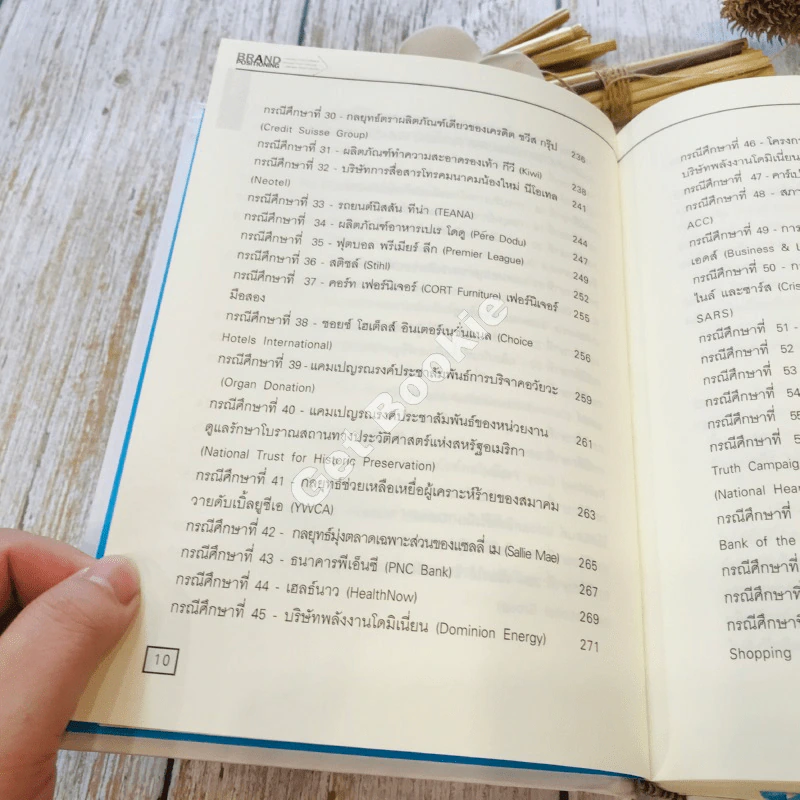 BRAND
POSITIONING
กรณีศึกษาที่ 30 - กลยุทธ์ตราผลิตภัณฑ์เดียวของเครดิต ซวีส กรุ๊ป
(Credit Suisse Group) 236
กรณีศึกษาที่ 31 - ผลิตภัณฑ์ทำความสะอาดรองเท้า กีวี (Kiwi) 238
กรณีศึกษาที่ 32 - บริษัทการสื่อสารโทรคมนาคมน้องใหม่ นีโอเทล 241
(Neotel)
กรณีศึกษาที่ 33 - รถยนต์นิสสัน ทีน่า (TEANA) 244
กรณีศึกษาที่ 34 - ผลิตภัณฑ์อาหารเปเร โดดู (Pére Dodu) 247
กรณีศึกษาที่ 35 - ฟุตบอล พรีเมียร์ ลีก (Premier League) 249
กรณีศึกษาที่ 36 - สติชล์ (Stihl) 252
กรณีศึกษาที่ 37 - คอร์ท เฟอร์นิเจอร์ (CORT Furniture) เฟอร์นิเจอร์ 255
มือสอง
กรณีศึกษาที่ 38 - ชอยซ์ โฮเต็ลส์ อินเตอร์เนชั่นแนล (Choice 256
Hotels International)
กรณีศึกษาที่ 39 - แคมเปญรณรงค์ประชาสัมพันธ์การบริจาคอวัยวะ 259
(Organ Donation)
กรณีศึกษาที่ 40 - แคมเปญรณรงค์ประชาสัมพันธ์ของหน่วยงาน 261
ดูแลรักษาโบราณสถานทางประวัติศาสตร์แห่งสหรัฐอเมริกา
(National Trust for Historic Preservation)
กรณีศึกษาที่ 41 - กลยุทธ์ช่วยเหลือเหยื่อผู้เคราะห์ร้ายของสมาคม 263
วายดับเบิ้ลยูซีเอ (YWCA)
กรณีศึกษาที่ 42 - กลยุทธ์มุ่งตลาดเฉพาะส่วนของแซลลี่ เม (Sallie Mae) 265
กรณีศึกษาที่ 43 - ธนาคารพีเอ็นซี (PNC Bank) 267
กรณีศึกษาที่ 44 - เฮลธ์นาว (HealthNow) 269
กรณีศึกษาที่ 45 - บริษัทพลังงานโดมิเนี่ยน (Dominion Energy) 271
10
กรณีศึกษาที่ 46 - โครงกา
บริษัทพลังงานโดมิเนี่ยน
กรณีศึกษาที่ 47 - คาร์เป
กรณีศึกษาที่ 48 - สภา
ACC)
กรณีศึกษาที่ 49 - การ
เอดส์ (Business & L
กรณีศึกษาที่ 50 - ก
ไนล์ และซาร์ส (Cris
SARS)
กรณีศึกษาที่ 51 -
กรณีศึกษาที่ 52
กรณีศึกษาที่ 53
กรณีศึกษาที่ 54
กรณีศึกษาที่ 55
กรณีศึกษาที่ 5
Truth Campaig
(National Hear
กรณีศึกษาที่
Bank of the
กรณีศึกษาที่
กรณีศึกษาที่
กรณีศึกษาที่
Shopping
Get Bookie